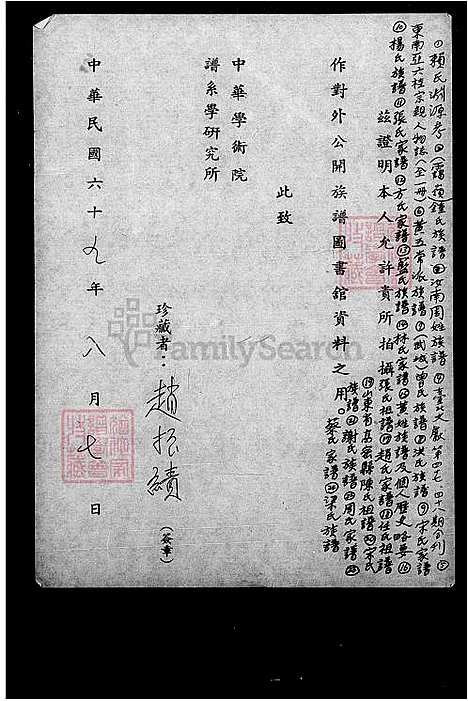 ①賴氏淵源考②(霄苑)鍾氏族譜③汝南周姓族譜④臺北文獻第四七、四十八期合刊⑤
東南亞六桂宗親人物誌(全一冊)⑥黃五常派族譜⑦(武城)曾氏族譜⑧洪氏族譜⑨宋氏家譜
⑩楊氏族譜⑪張氏家譜⑫方氏家譜⑬藍氏族譜⑭林氏家譜⑮黃姓族譜及個人歷史略要⑯
茲證明本人允許貴所拍攝張氏祖譜⑰趙氏家譜⑱任氏祖譜
⑲山東省高密縣陳氏祖譜⑳宋氏
族譜㉑謝氏族譜㉒周氏家譜㉓
作對外公開族譜圖書館資料之用。蔡氏家譜㉔梁氏族譜
此致
中華學術院
譜系學研究所
珍藏者：趙振績(簽章)
中華民國六十九年八月七日
FamilySearch